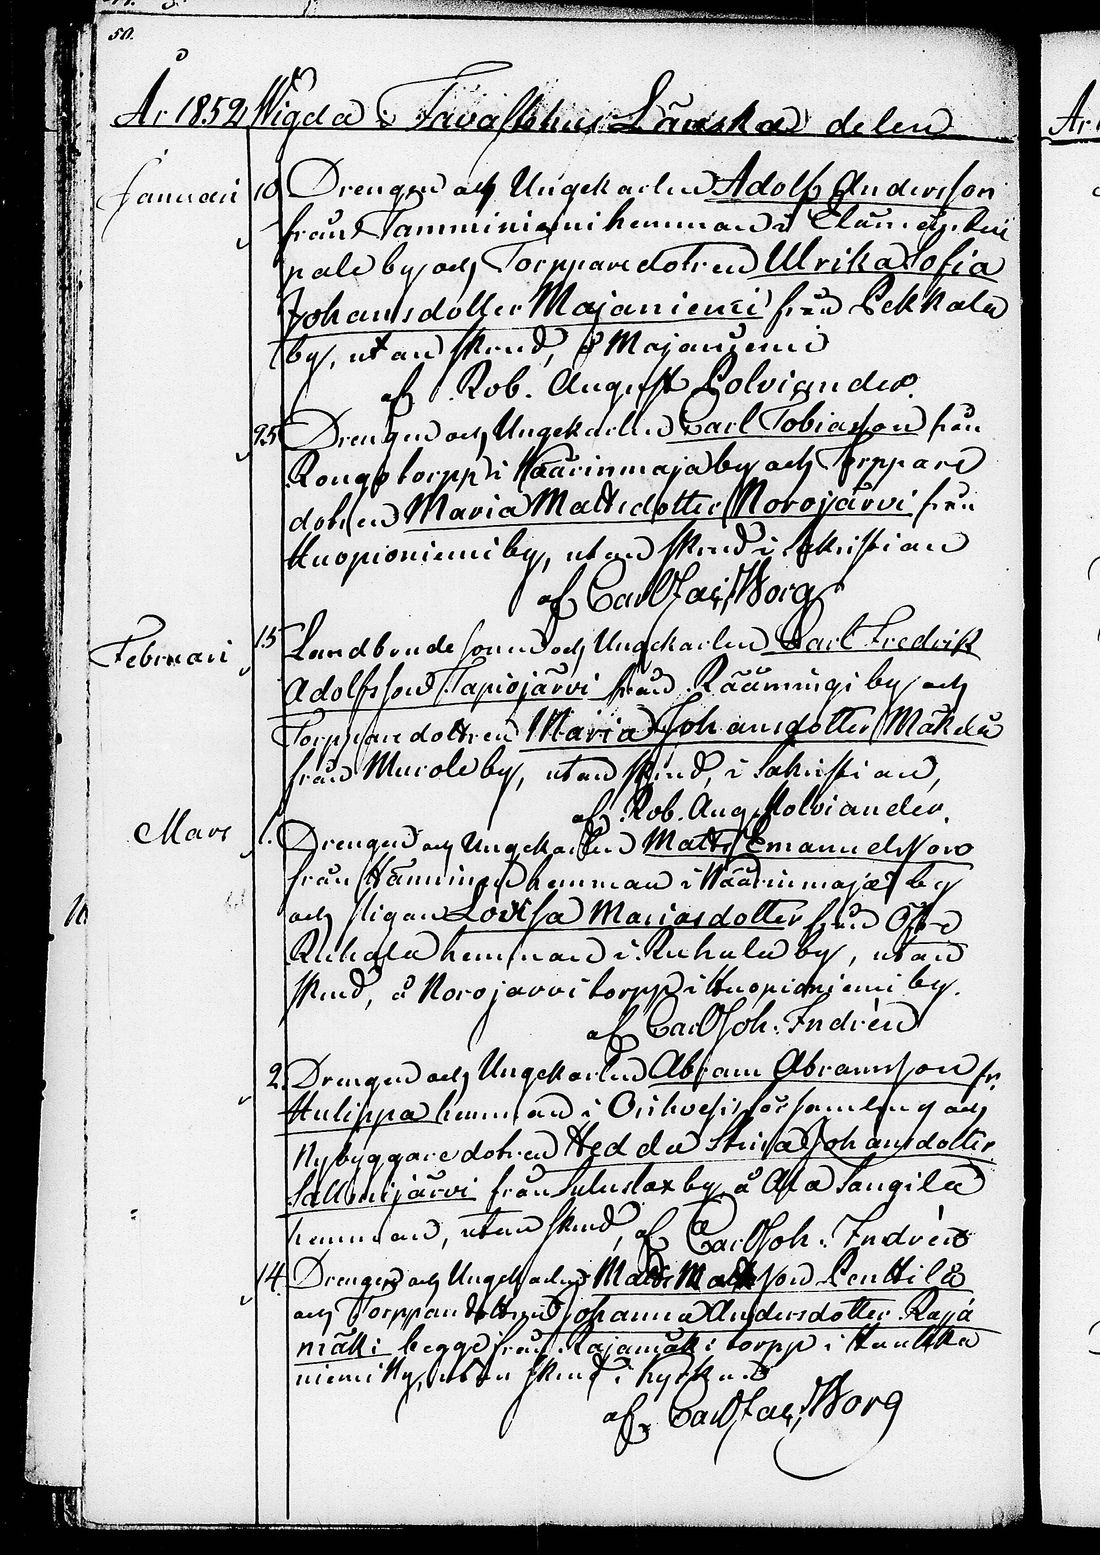 50.
År 1852 Wigda i Tavastehus Länska delen
Januari 10 Drengen och Ungekarlen Adolf Andersson
från Tamminiemi hemman i
pale by och Torppare dotren Ulrika Sofia
Johansdotter Majaniemi från Pekkala
by, utan skrud, å Majaniemi
af Rob. August Polviander.
25 Drengen och Ungekarlen Carl Tobiasson från
Rongo torpp i Wäärinmaja by och Torppare
dotren Maria Mattsdotter Norojärvi från
Huopioniemi by, utan skrud i Sakristian
af Carl Jac. Worg
Februari 15 Landbonde sonen och Ungekarlen Carl Fredrik
Adolfsson Tapiojärvi från Rääningi by och
Torppare dottren Maria Johansdotter Mäkelä
från Murole by, utan skrud, i Sakristian,
af Rob. Aug. Polviander.
Mars 1. Drengen och Ungekarlen Matts Emanuel Noro
från Hänninen hemman i Wäärinmaja by
och pigan Lovisa Mariasdotter från Öfre
Ruhala hemman i Ruhala by, utan
skrud, å Norojärvi torpp i Huopioniemi by.
af Carl Joh. Indrén
2. Drengen och Ungekarlen Abram Abramsson fr.
Hulippa hemman i Orihvesi församling och
Nybyggare dotren Hedda Stina Johansdotter
Sallmijärvi från by, å Ala Sangila
hemman, utan skrud, af Carl Joh. Indrén
14. Drengen och Ungekarlen Matts Mattsson Penttilä
och Torppare dottren Johanna Andersdotter Raja
mäki begge från Rajamäki torpp i Hankka
niemi by, utan skrud i Kyrkan
af Carl Jac. Worg
År